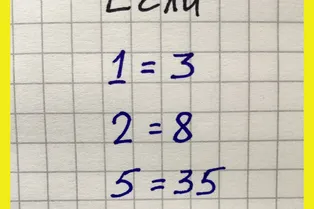 Если
1 = 3
2 = 8
5 = 35